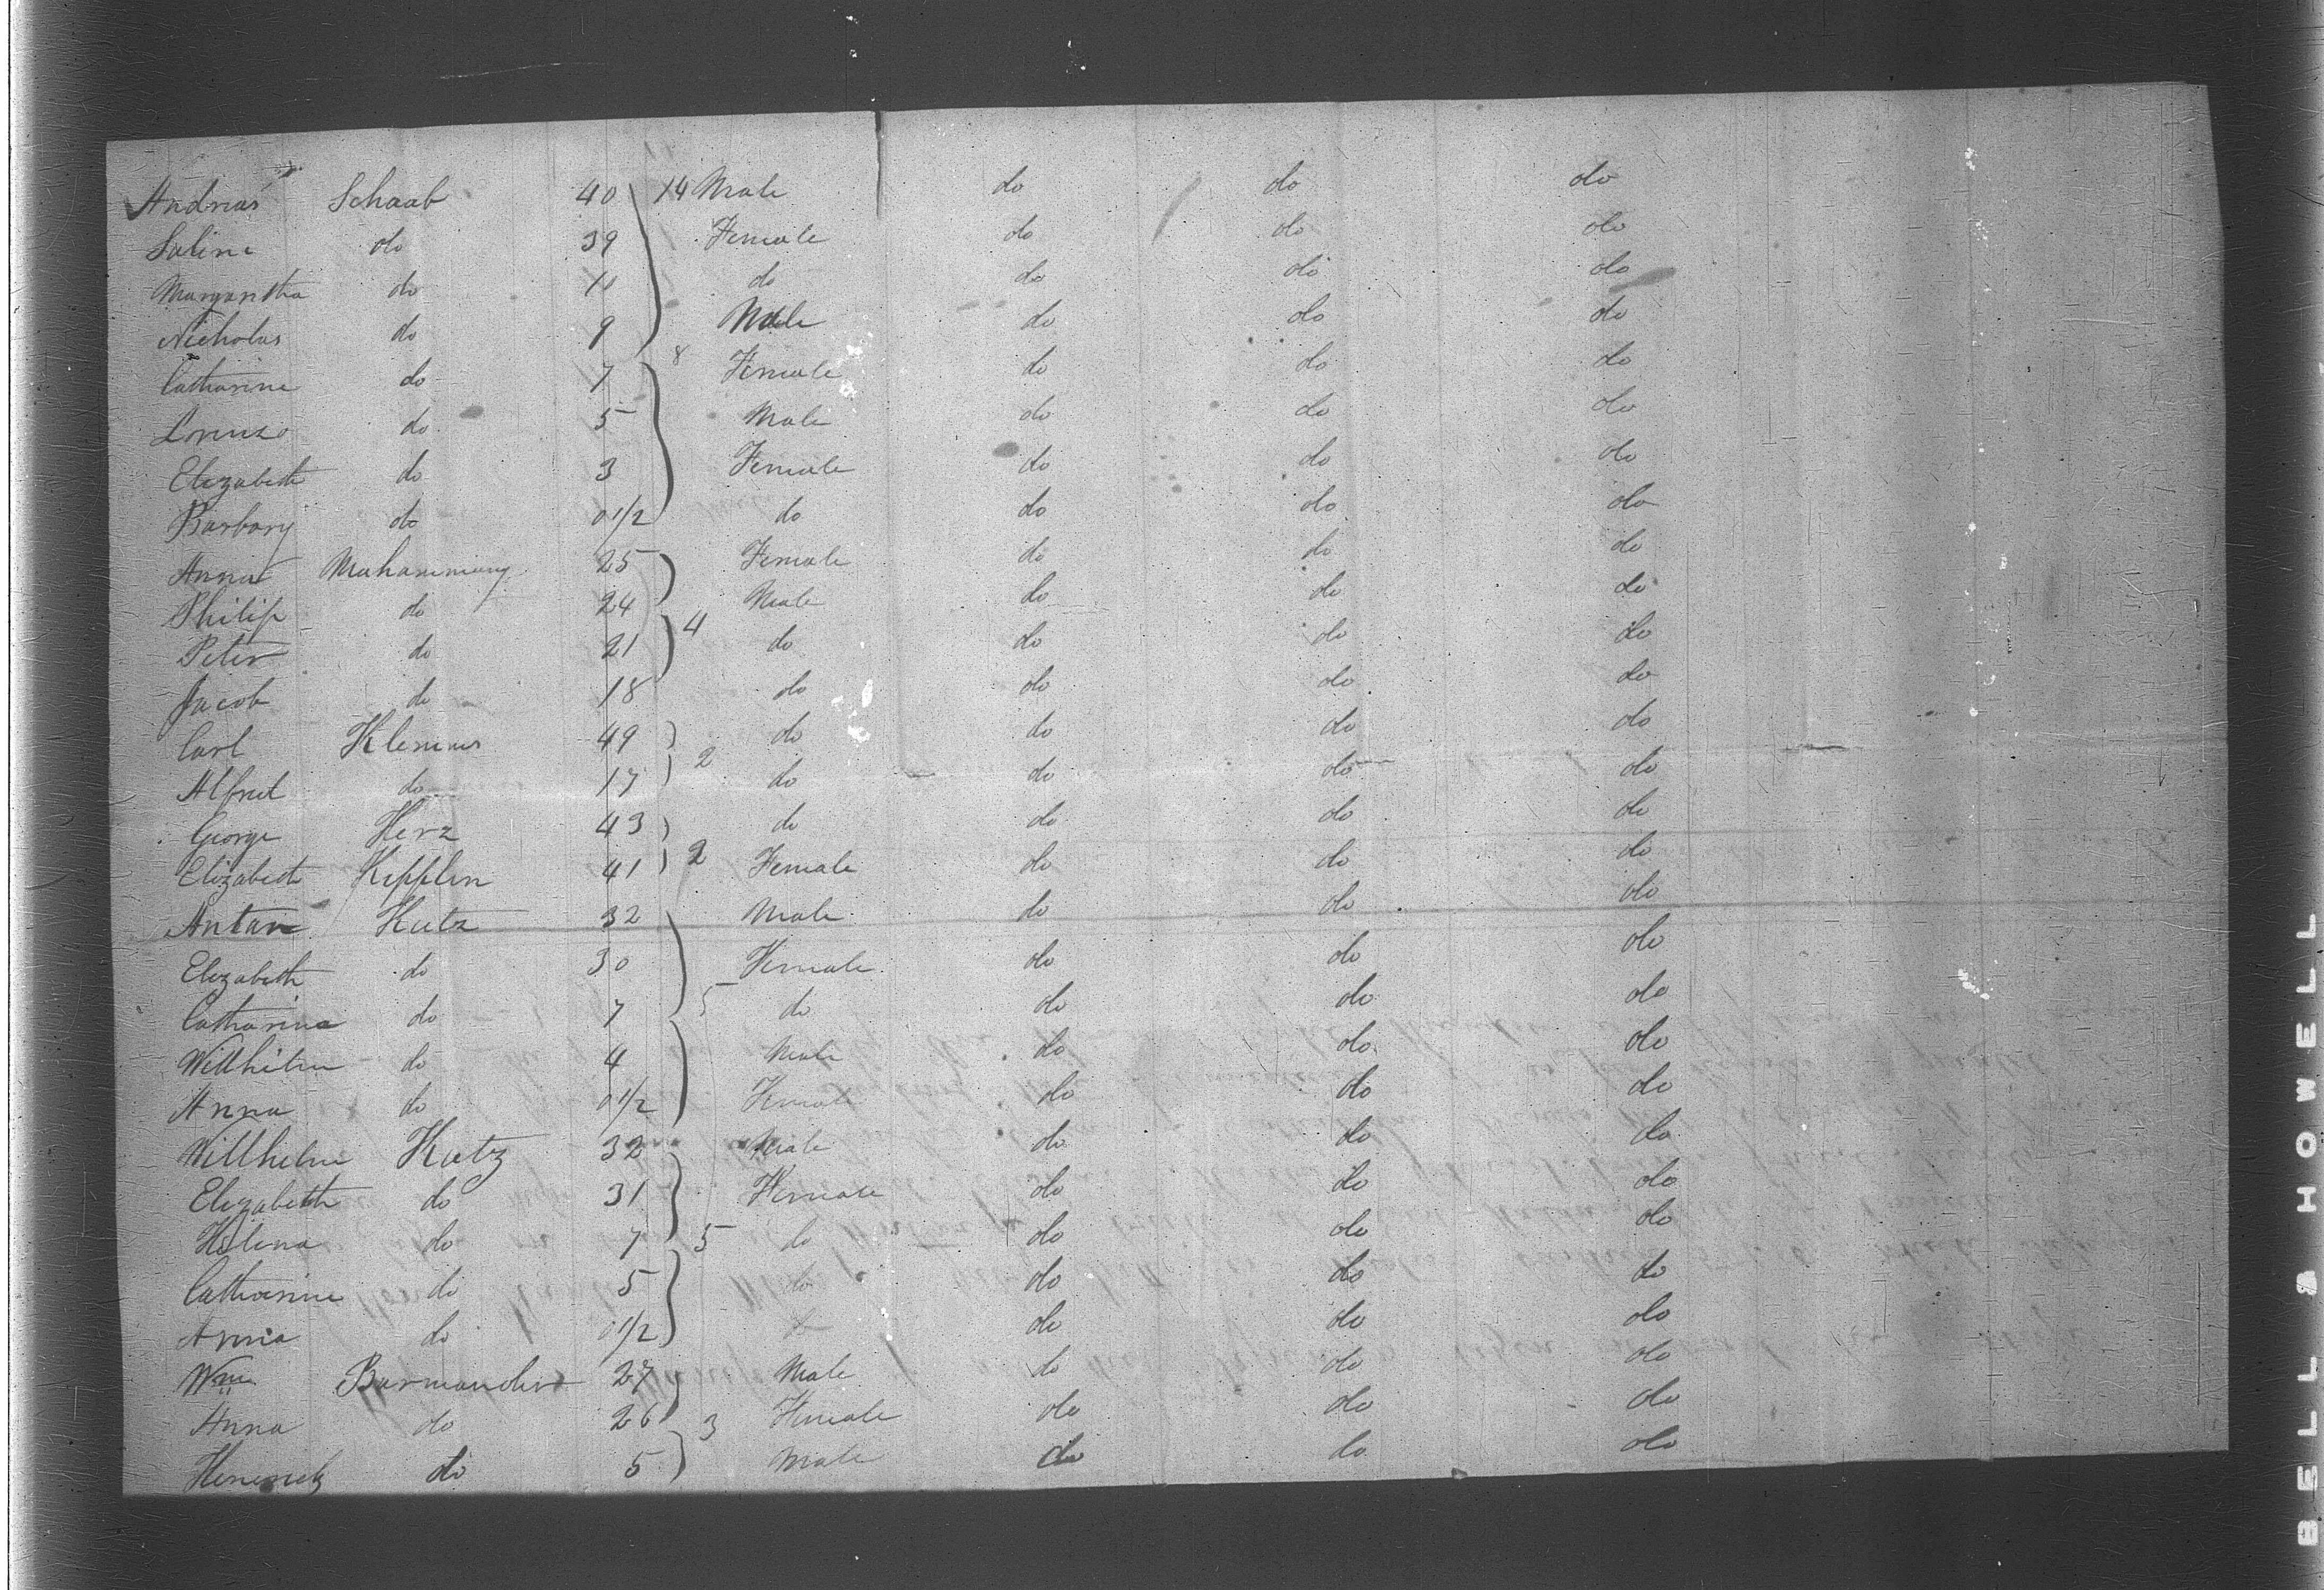 Andreas Schaab 40 14 Male do do do
Saline do 39 Female do do do
Margaretha do 10 do do do do
Nicholas do 9 Male do do do
8
Catharine do 7 Female do do do
Lorenzo do 5 Male do do do
Elizabeth do 3 Female do do do
Barbary do 0 1/2 do do do do
Anna 25 Female do do do
Philip do 24 Male do do do
4
Peter do 21 do do do do
Jacob do 18 do do do do
Carl Klemmes 49 do do do do
2
Alfred do 17 do do do do
George Herz 43 do do do do
2
Elizabeth Kepplen 41 Female do do do
Antan Kutz 32 Male do do do
Elizabeth do 30 Female do do do
5
Catharina do 7 do do do do
Willhelm do 4 Male do do do
Anna do 0 1/2 Female do do do
Willhelm Kutz 32 Male do do do
Elizabeth do 31 Female do do do
Helena do 7 5 do do do do
Catharine do 5 do do do do
Anna do 0 1/2 do do do do
Wm Barmander 27 Male do do do
Anna do 26 3 Female do do do
Henerich do 5 Male do do do
BELL & HOWELL